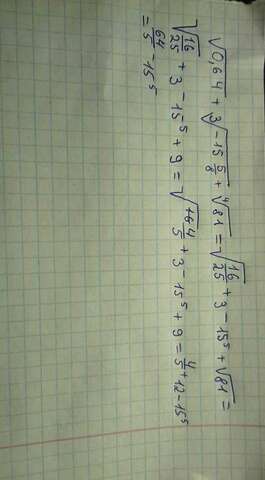 √0,64 + ³√-15 5/8 + ⁴√81 = √16/25 + 3 - 15⁵ + √81 =
√16/25 + 3 - 15⁵ + 9 = √16 4/5 + 3 - 15⁵ + 9 = 4/5 + 12 - 15⁵
= 64/5 - 15⁵